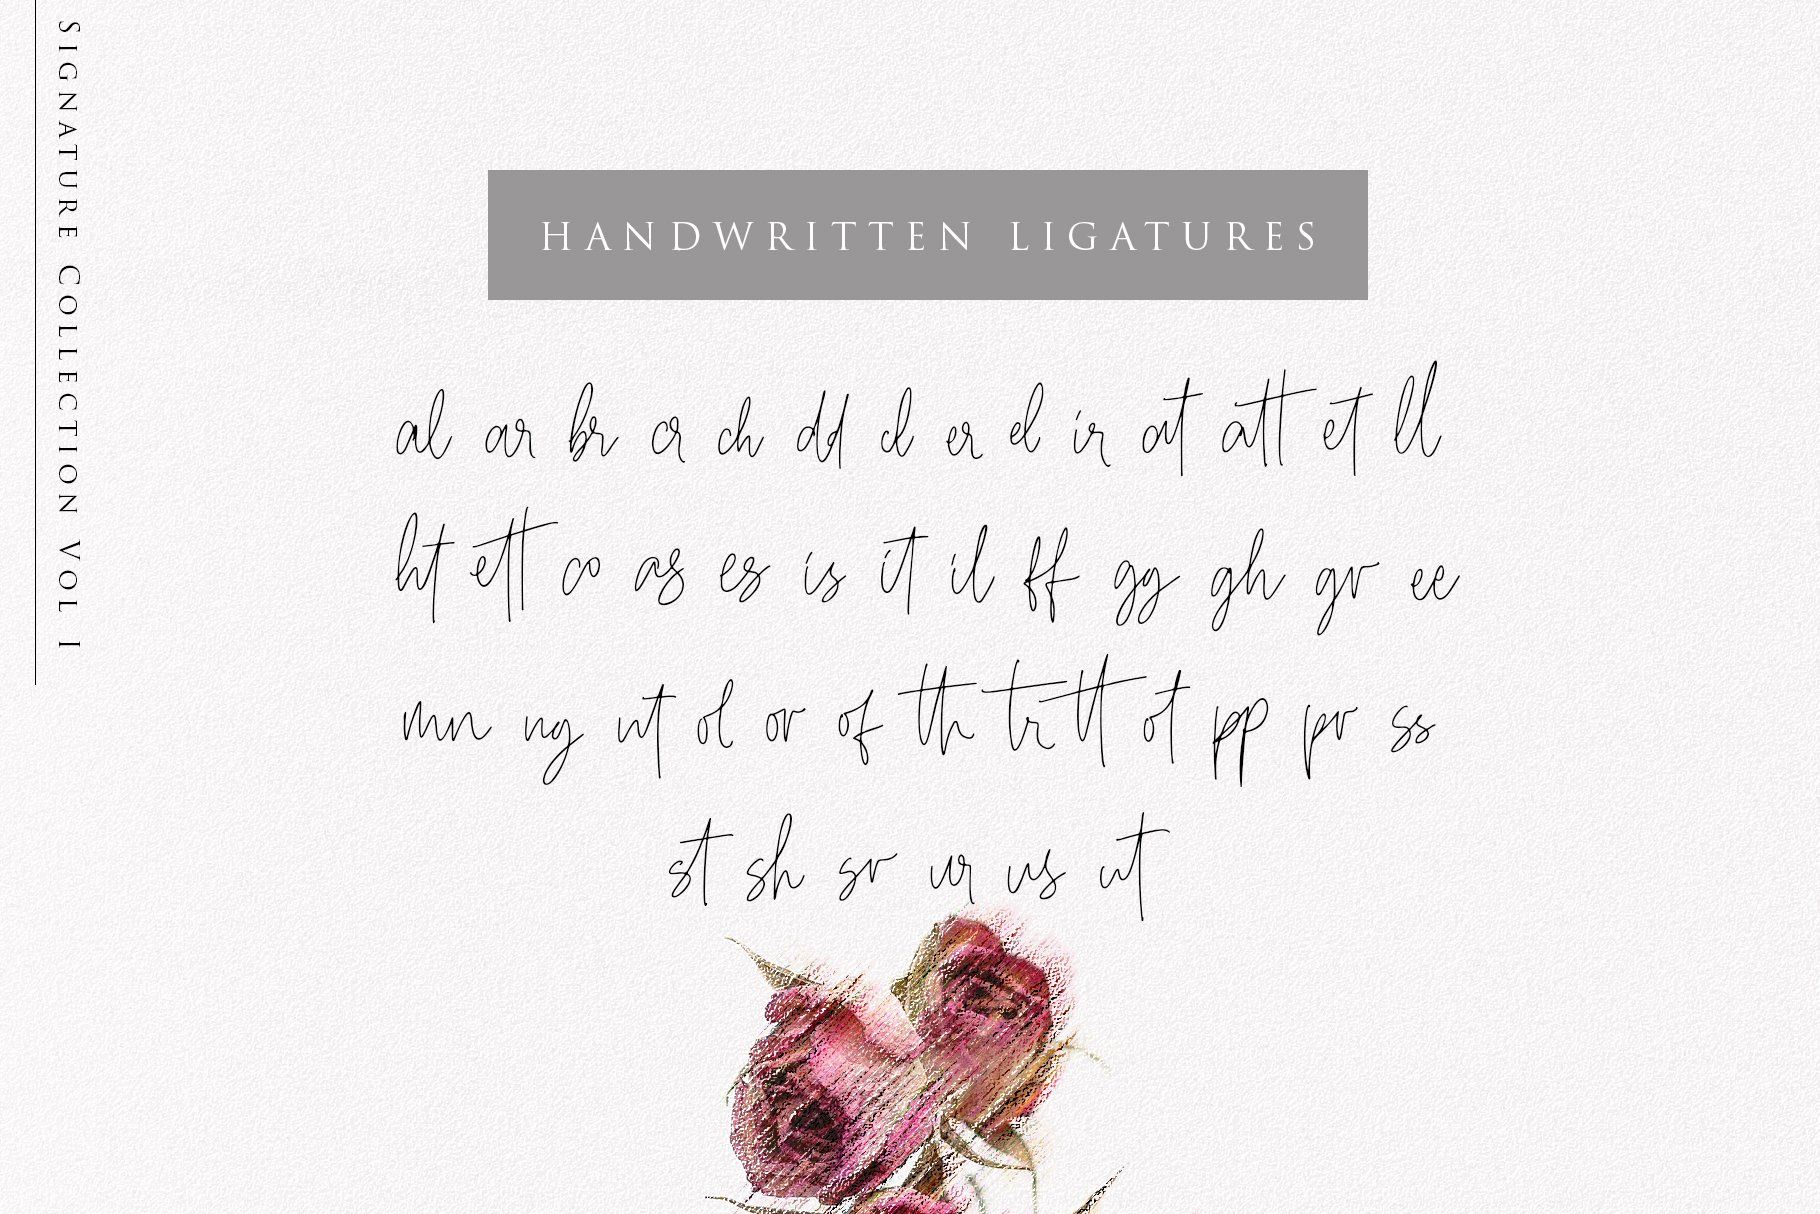 SIGNATURE COLLECTION VOL I
HANDWRITTEN LIGATURES
al ar br cr ch dd cl er el ir at att et ll
ht ett co as es is it il ff gg gh gr ee
mn ng nt ol or of th tr tt ot pp pr ss
st sh sr ur us ut